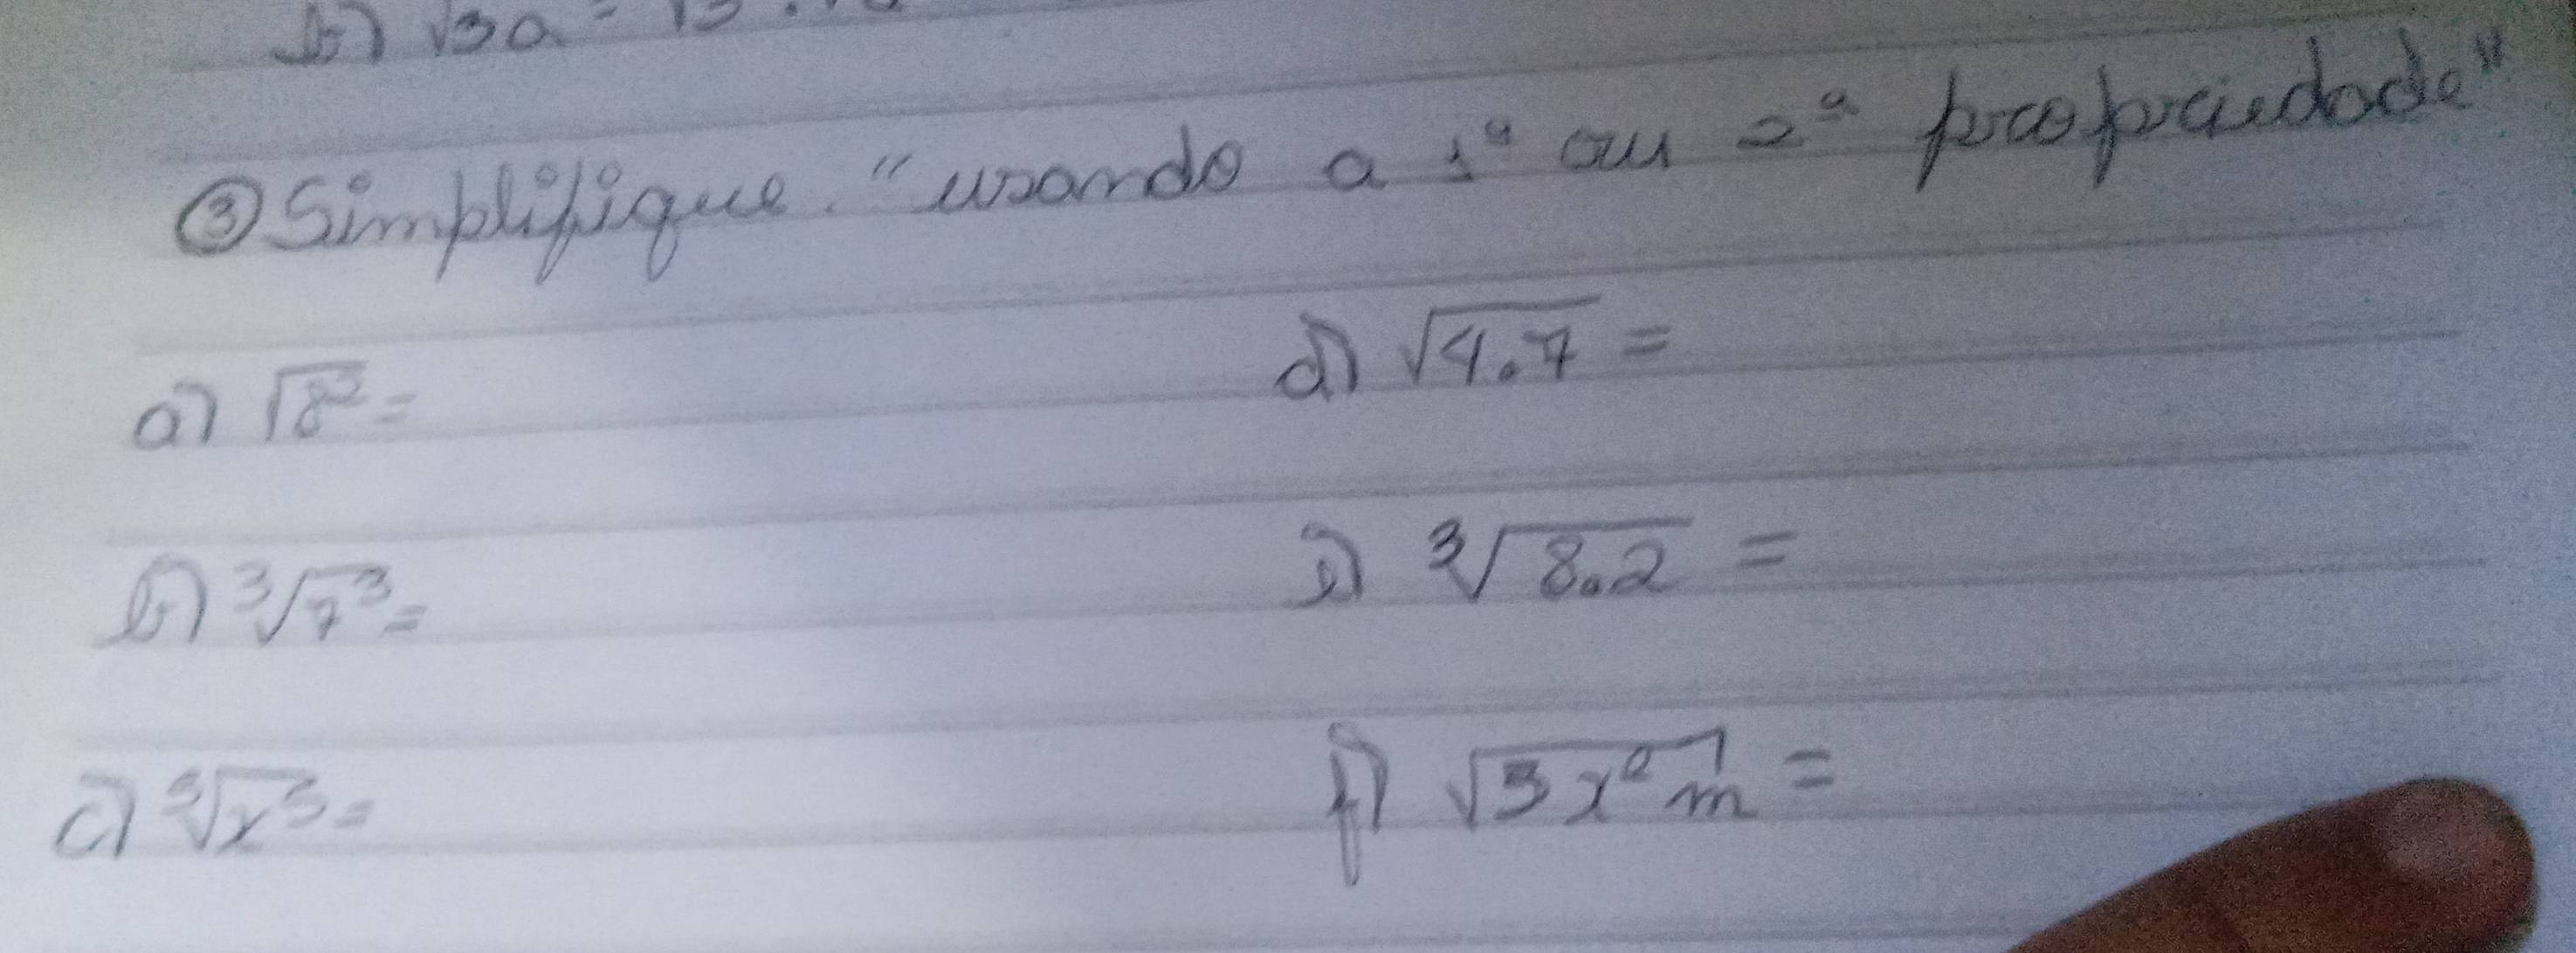 b) √3a =
③ Simplifique. "usando a 1ª ou 2ª propriedade"
a) √8² =
d) √4.7 =
b) ³√7³ =
e) ³√8.2 =
c) ³√x³ =
f) √3x²m =